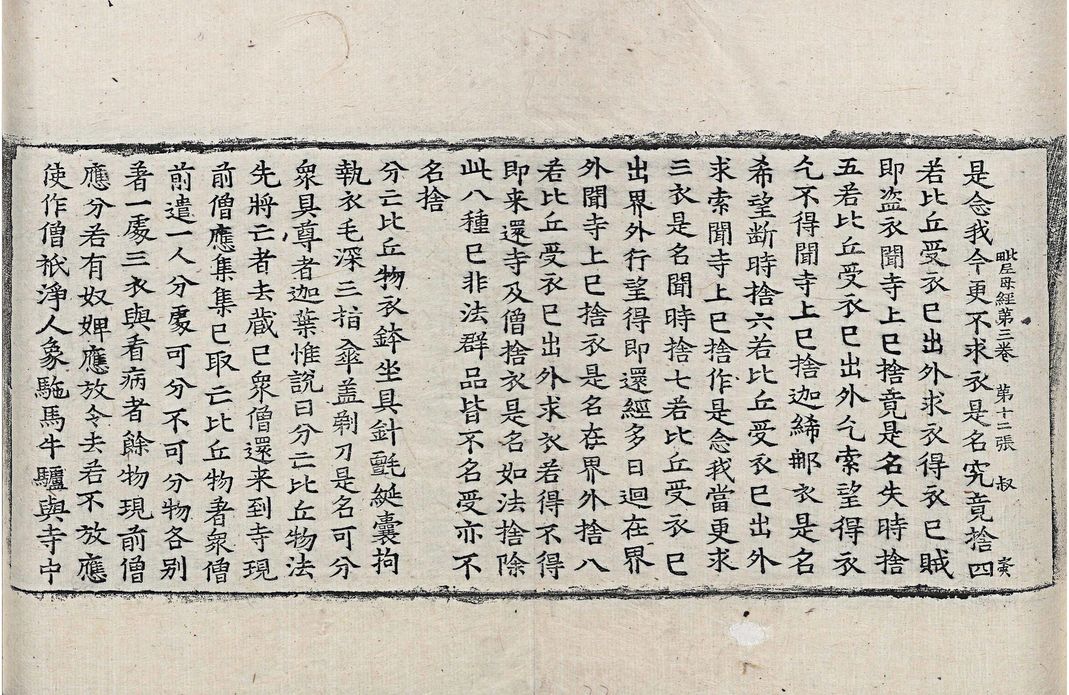 是念我今更不求衣是名究竟捨四
毗尼母經第三卷 第十二張 叔
若比丘受衣已出外求衣得衣已賊
即盜衣聞寺上已捨竟是名失時捨
五若比丘受衣已出外乞索望得衣
乞不得聞寺上已捨迦絺那衣是名
希望断時捨六若比丘受衣已出外
求索聞寺上已捨作是念我當更求
三衣是名聞時捨七若比丘受衣已
出界外行望得即還經多日迴在界
外聞寺上已捨衣是名在界外捨八
若比丘受衣已出外求衣若得不得
即来還寺及僧捨衣是名如法捨除
此八種已非法群品皆不名受亦不
名捨
分亡比丘物衣鉢坐具針氈綖囊拘
執衣毛深三指傘盖剃刀是名可分
衆具尊者迦葉惟說曰分亡比丘物法
先將亡者去藏已衆僧還来到寺現
前僧應集集已取亡比丘物著衆僧
前遣一人分處可分不可分物各别
著一處三衣與看病者餘物現前僧
應分若有奴婢應放令去若不放應
使作僧祇淨人象駞馬牛驢與寺中